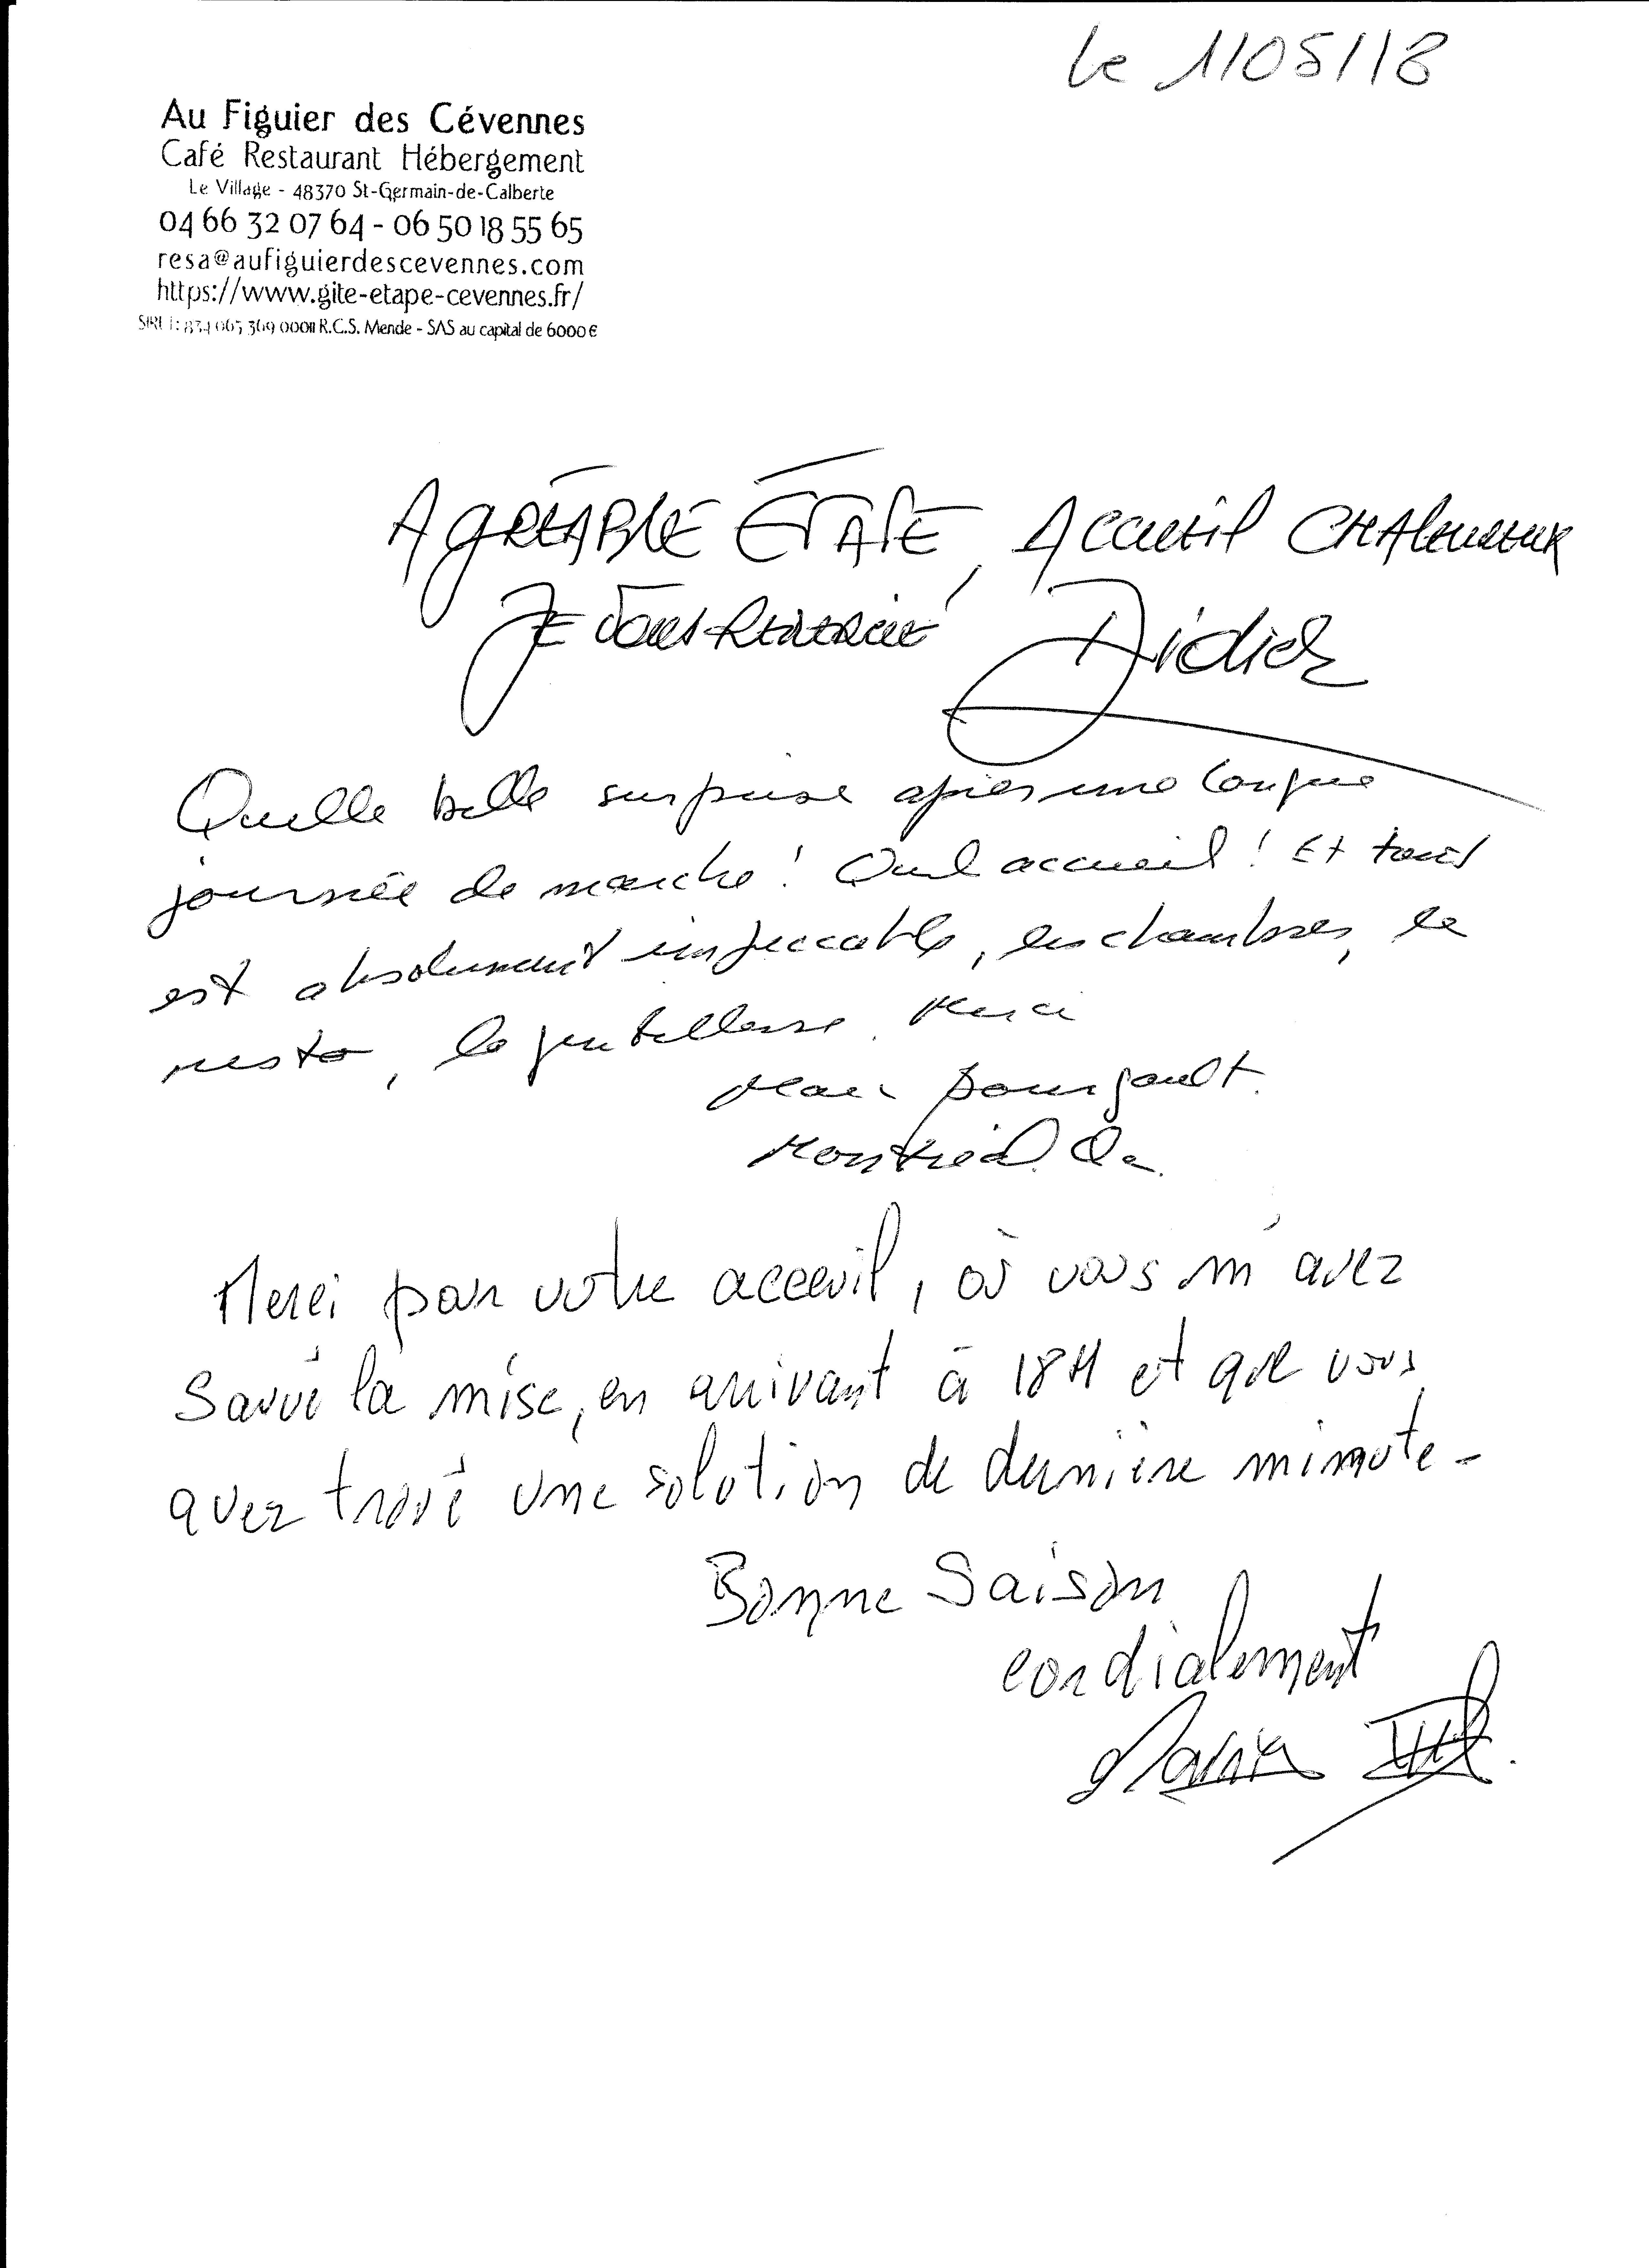 Le 1/05/18
Au Figuier des Cévennes
Café Restaurant Hébergement
Le Village - 48370 St-Germain-de-Calberte
04 66 32 07 64 - 06 50 18 55 65
resa@aufiguierdescevennes.com
https://www.gite-etape-cevennes.fr/
R.C.S. Mende - SAS au capital de 6000 €
AGRÉABLE ÉTAPE, ACCUEIL CHALEUREUX
JE VOUS REMERCIE Didier
Quelle belle surprise après une longue
journée de marche ! Quel accueil ! Et tout
est absolument impeccable, les chambres, le
resto, la gentillesse. Merci
Bourgault.
Montréal. Qc.
Merci pour votre acceuil, où vous m'avez
sauvé la mise, en arrivant à 18H et que vous
avez trouvé une solution de dernière minute -
Bonne Saison
cordialement